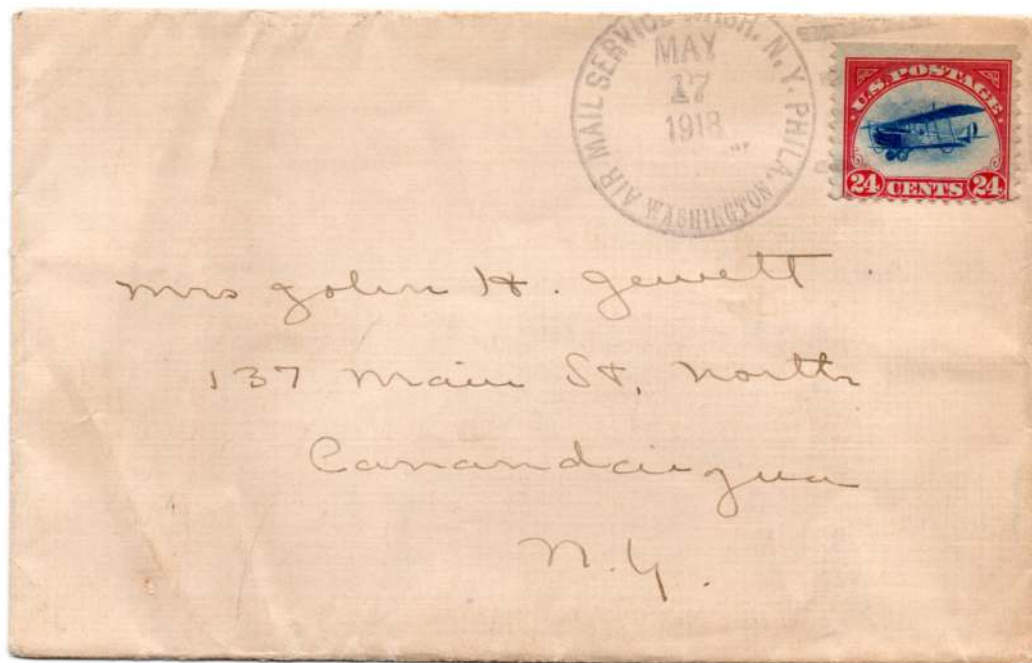 AIR MAIL SERVICE WASH. N.Y. PHILA.
MAY
17
1918
WASHINGTON
U.S. POSTAGE
24 CENTS 24
Mrs John H. Jewett
137 Main St, North
Canandaigua
N.Y.